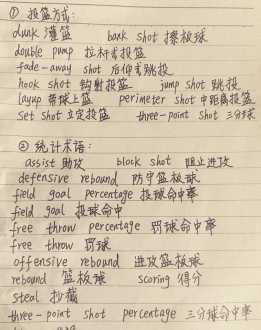 ① 投篮方式:
dunk 灌篮 bank shot 擦板球
double pump 拉杆式投篮
fade-away shot 后仰式跳投
hook shot 钩射投篮 jump shot 跳投
layup 带球上篮 perimeter shot 中距离投篮
set shot 立定投篮 three-point shot 三分球
② 统计术语:
assist 助攻 block shot 阻止进攻
defensive rebound 防守篮板球
field goal percentage 投球命中率
field goal 投球命中
free throw percentage 罚球命中率
free throw 罚球
offensive rebound 进攻篮板球
rebound 篮板球 scoring 得分
steal 抄截
three-point shot percentage 三分球命中率